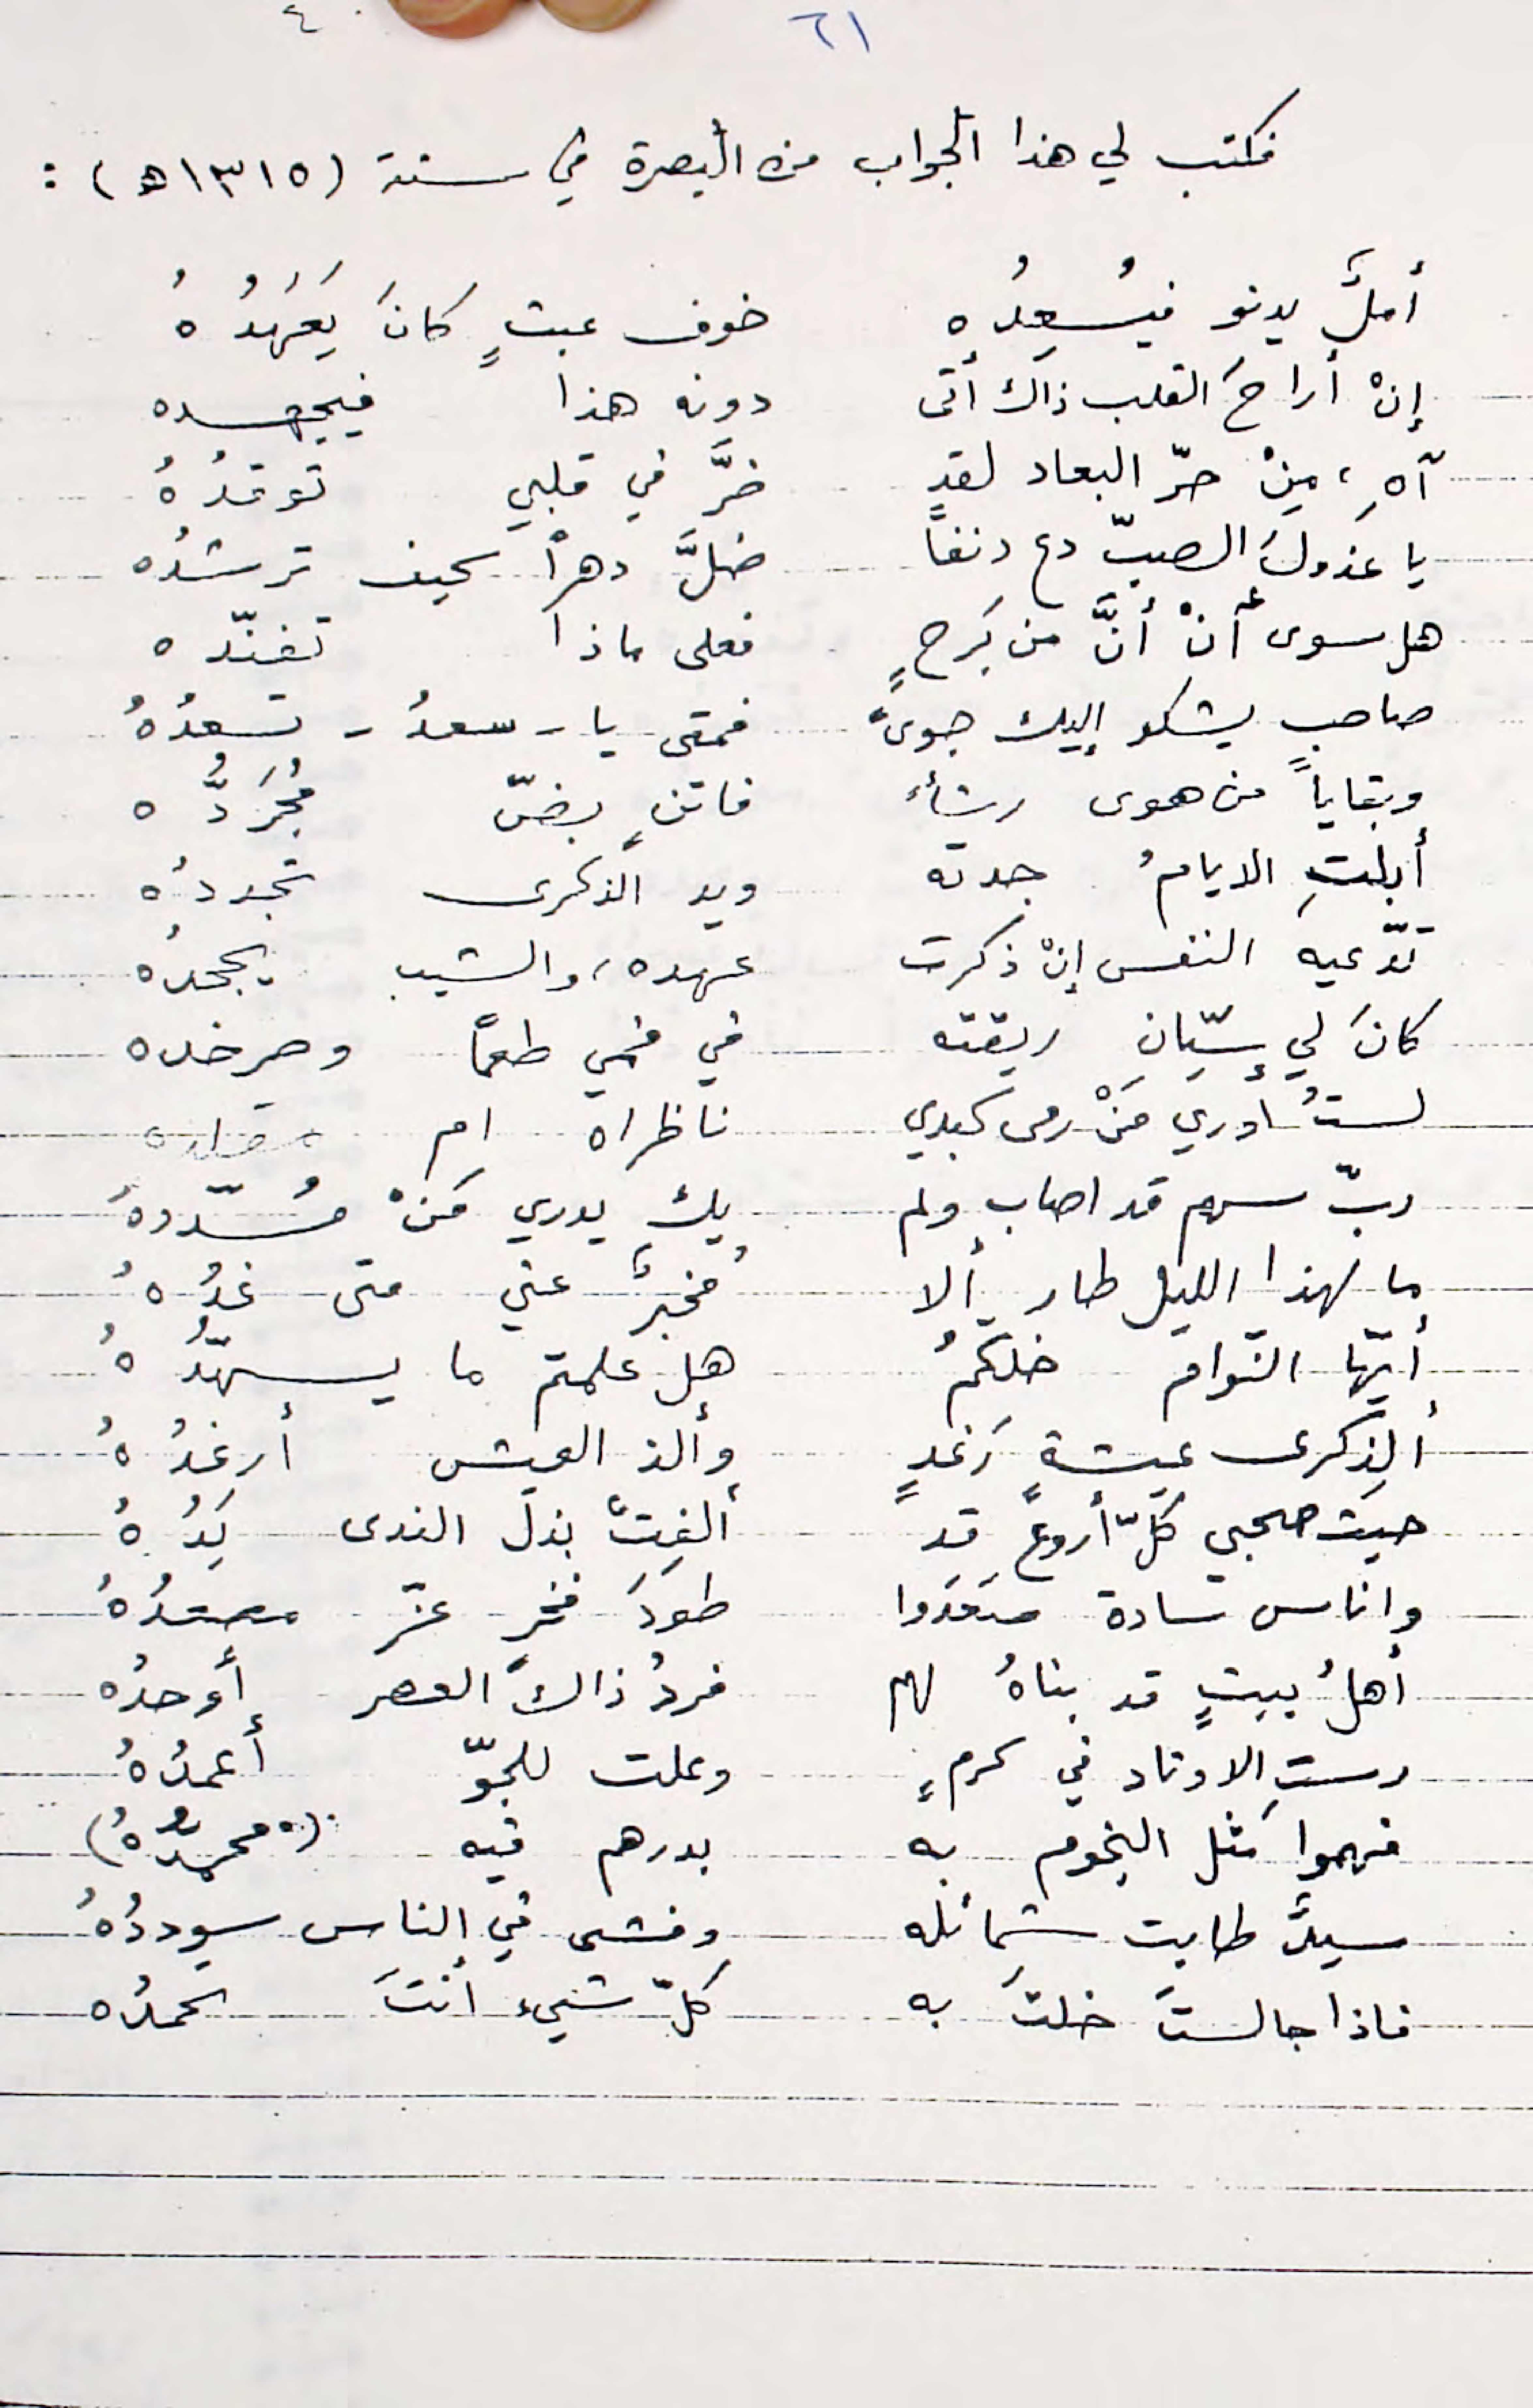 ٦١ ٤
فكتب لي هذا الجواب من البصرة في سنة (١٣١٥هـ) :
أملٌ يدنو فيُسعِدُه خوف عبثٍ كانَ يَعْهَدُهُ
إنْ أراحَ القلب ذاك أتى دونه هذا فيجهده
آهِ، مِنْ حرّ البعاد لقد ضرَّ في قلبي توقدُهُ
يا عذولَ الصبّ دع دنفاً ضلَّ دهراً كيف ترشدُه
هل سوى أنْ أنَّ من بَرحٍ فعلى ماذا تفنّده
صاحبٍ يشكو إليك جوىً فمتى يا - سعدُ - تسعدُهُ
وبقاياً من هوى رشأٍ فاتنٍ بضّ مُجَرَدُّه
أبلتِ الايامُ جدته ويد الذكرى تجددُه
تدّعيه النفس إنْ ذكرت عهده، والشيب يجحدُه
كانَ لي سيّانِ ريقته في فمي طعماً وصرخده
لستُ ادري مَنْ رمى كبدي ناظراه ام
ربّ سهم قد اصاب ولم يكُ يدري مَنْ مُسّددهُ
ما لهذا الليل طار ألا مُخبرٌ عني متى غدُهُ
أيّها النّوام خلكمُ هل علمتم ما يسهّدُهُ
ألِذكرى عيشةٍ رَغدٍ وألذ العيش أرغدُهُ
حيث صحبي كلّ أروعٍ قد ألفِتْ بذلَ الندى يَدُهُ
واناس سادة صَعَدوا طودَ فخرٍ عزّ مصعدُهُ
أهلُ بيتٍ قد بناهُ لهم فردُ ذاك العصر أوحدُه
رستِ الاوتاد في كرمٍ وعلت للجوّ أعمدُهُ
فهموا مثل النجوم به بدرهم فيه (محمدُهُ)
سيدٌ طابت شمائله وفشى في الناس سوددُهُ
فاذا جالستَ خلتَ به كلّ شيء أنتَ تحمدُه